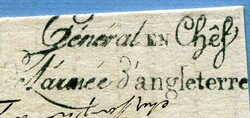 Général EN Chéf
L'armée d'angleterre